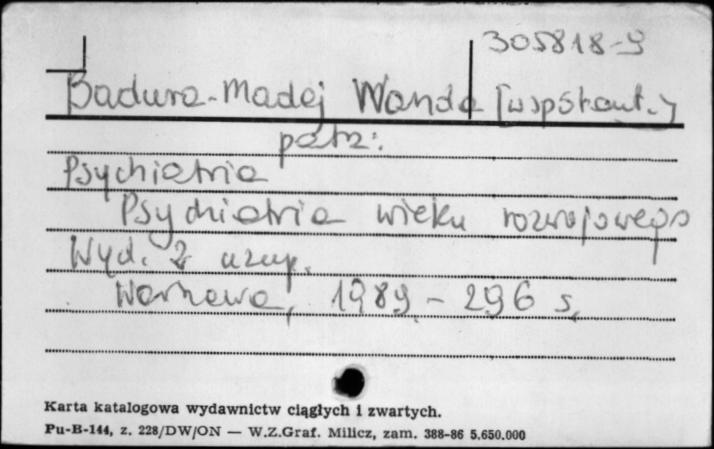 305818-9
Badura-Madej Wanda [współaut.]
patrz:
Psychiatria
Psychiatria wieku rozwojowego
Wyd. 2 uzup.
Warszawa, 1989. - 296 s.
Karta katalogowa wydawnictw ciągłych i zwartych.
Pu-B-144, z. 228/DW/ON — W.Z.Graf. Milicz, zam. 388-86 5.650.000